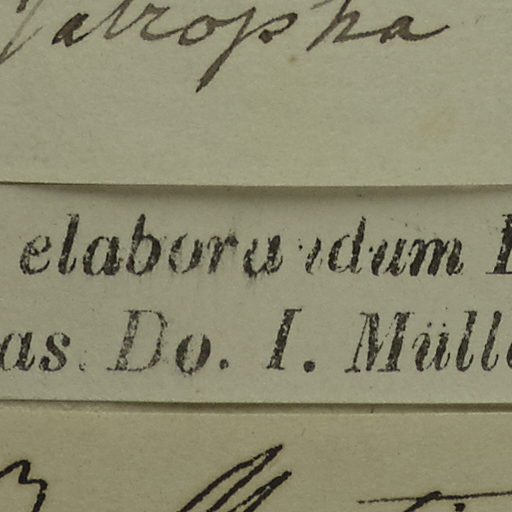 Jatropha
elaborandum
as. Do. I. Müll